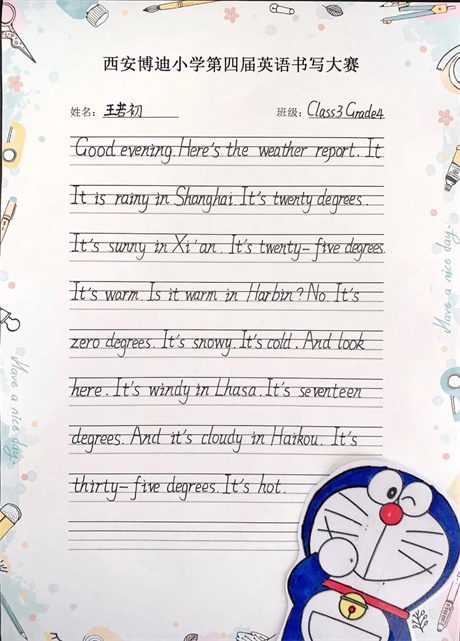 西安博迪小学第四届英语书写大赛
姓名: 王若初 班级: Class3 Grade4
Good evening. Here's the weather report. It
It is rainy in Shanghai. It's twenty degrees.
It's sunny in Xi'an. It's twenty-five degrees
It's warm. Is it warm in Harbin? No. It's
zero degrees. It's snowy. It's cold. And look
here. It's windy in Lhasa. It's seventeen
degrees. And it's cloudy in Haikou. It's
thirty-five degrees. It's hot.
Have a nice day.
Have a nice day.
Have a nice day.